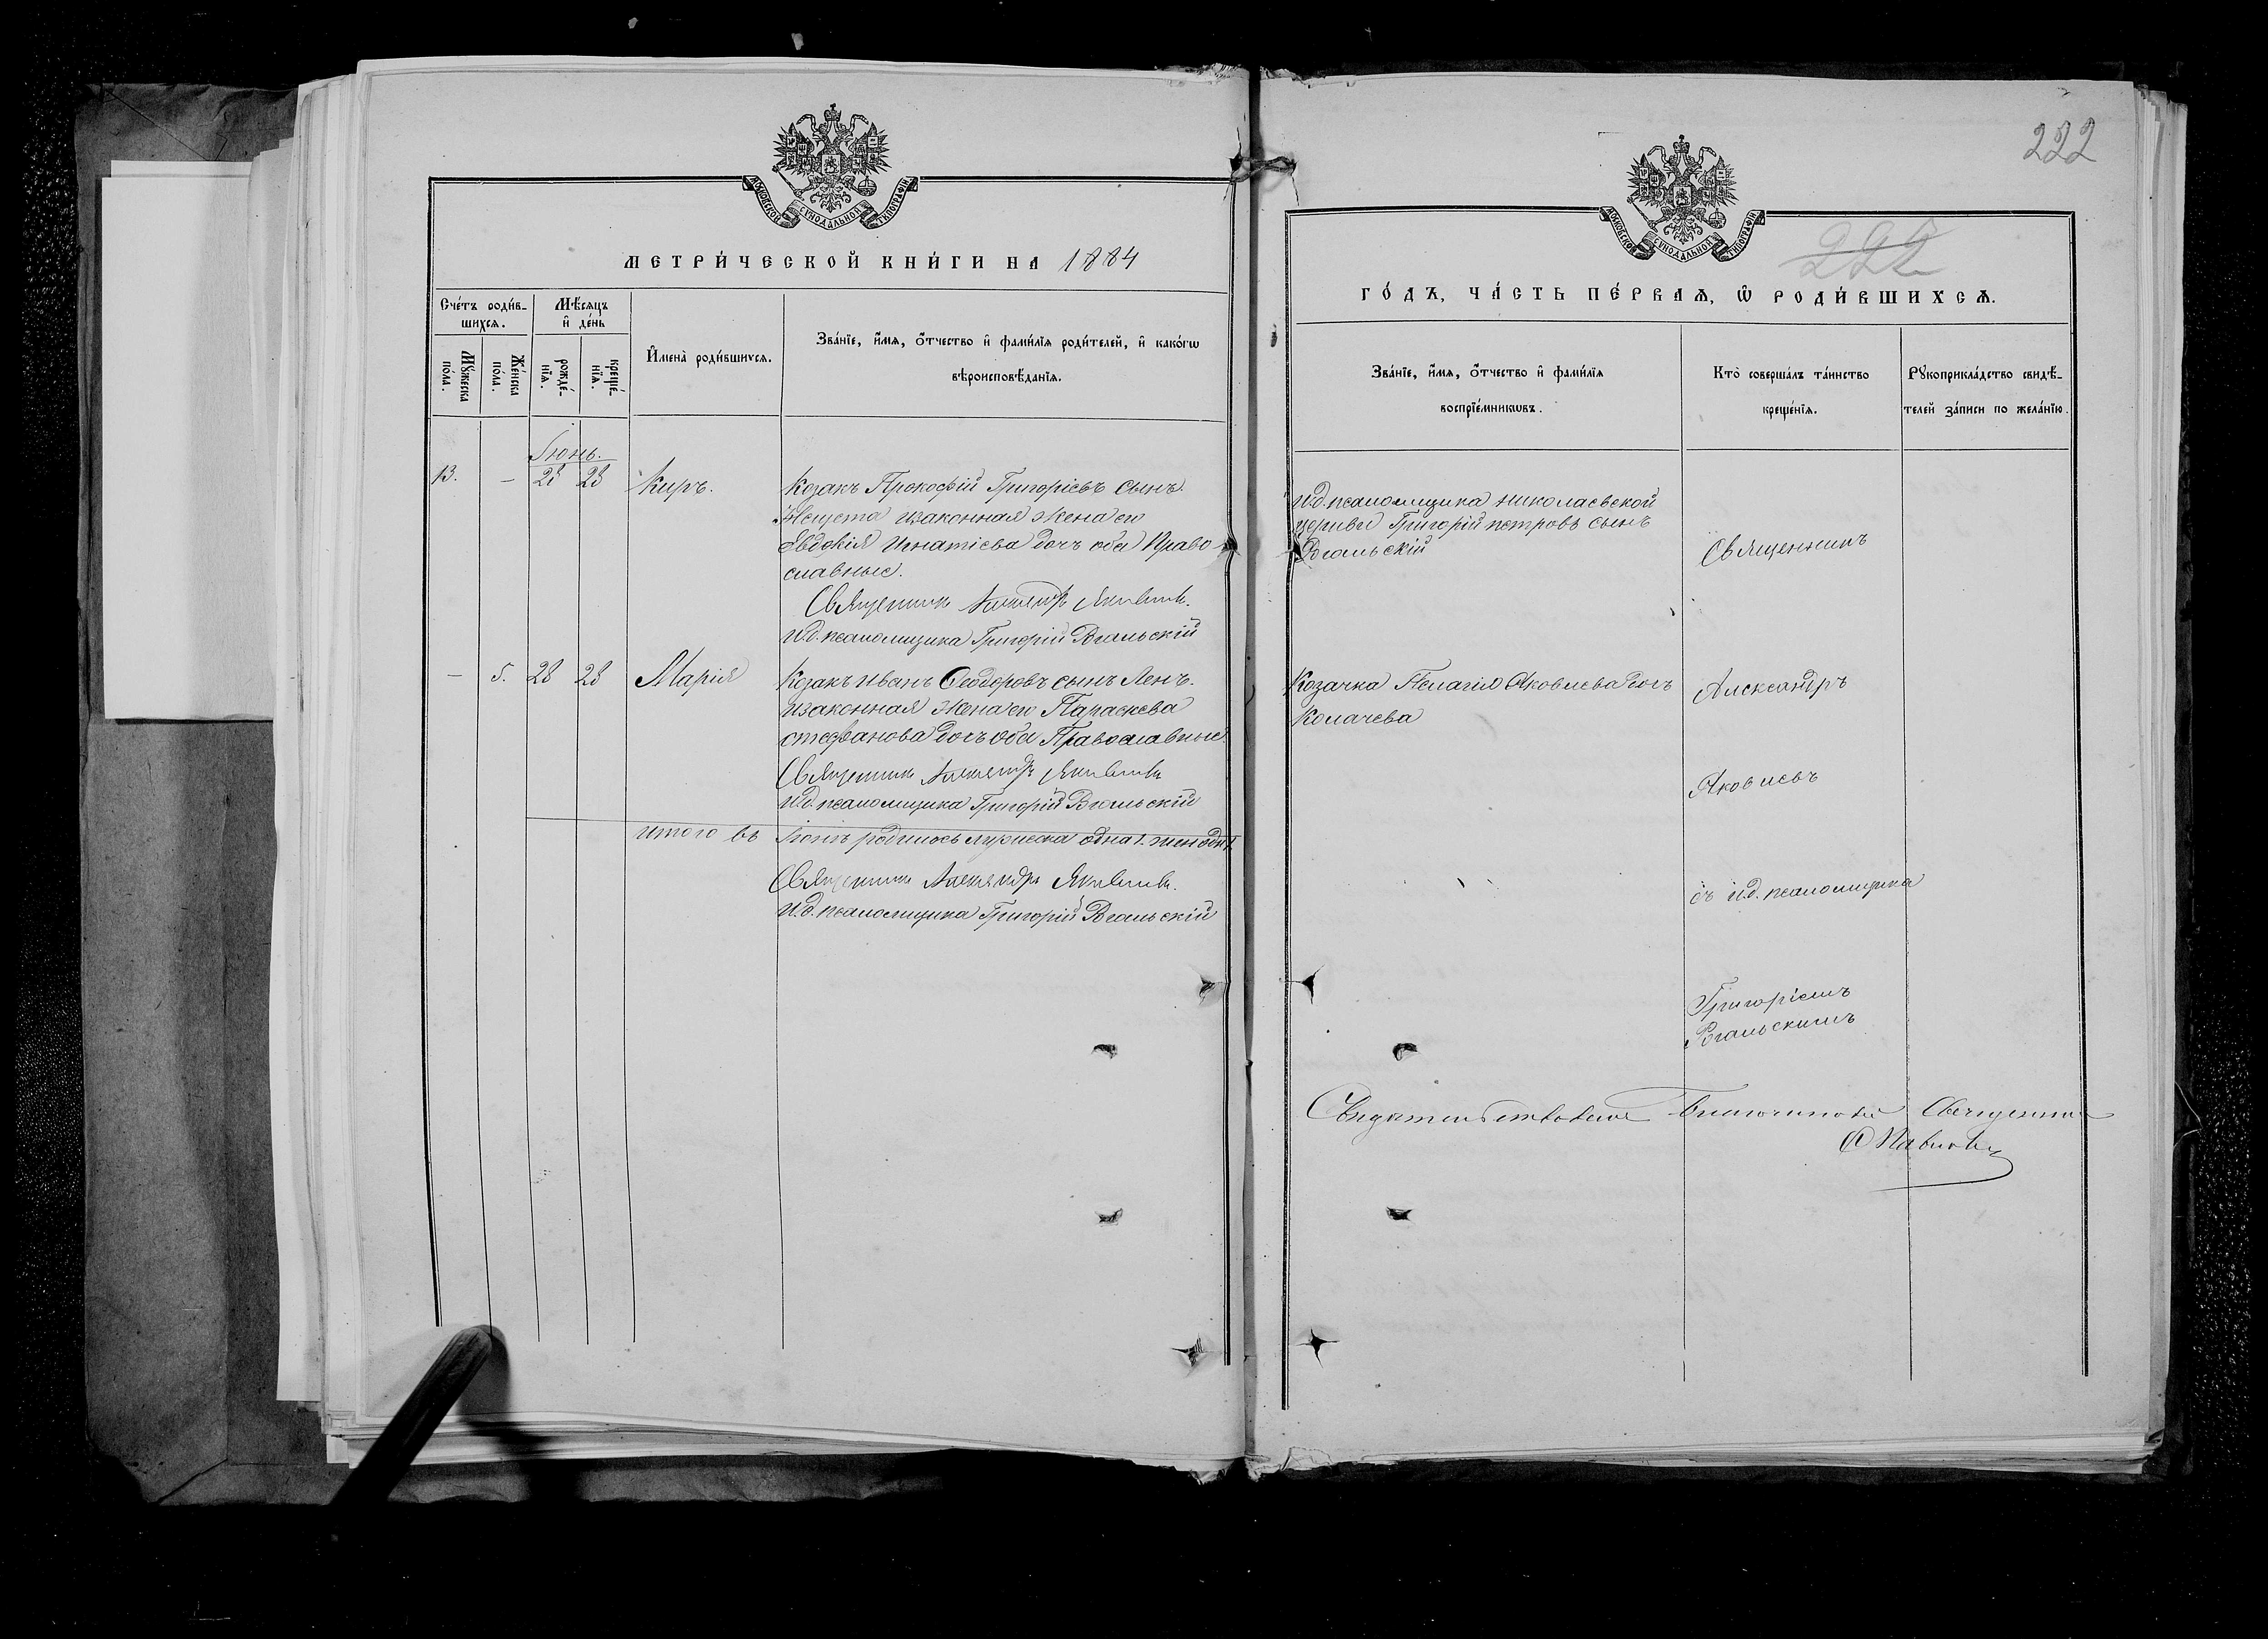 222
МОСКОВСКОЙ СѴНОДАЛЬНОЙ ТИПОГРАФІИ
МЕТРИ́ЧЕСКОЙ КНИ́ГИ НА 1884
Сче́тъ роди́в-
шихся.
Мѣ́сяцъ
и҆ де́нь
Мꙋ́жеска
по́ла.
Же́нска
по́ла.
рожде́-
нїѧ.
креще́-
нїѧ.
И҆мена̀ роди́вшихсѧ.
Зва́нїе, и҆́мѧ, ѻ҆́тчество и҆ фами́лїѧ роди́телей, и҆ како́гѡ
вѣроисповѣ́данїѧ.
Іюнь.
13. – 28 28 Киръ.
Козакъ Прокофій Григорієвъ сынъ
изаконная жена его
Евдокія Игнатієва дочь оба Право
славные.
Священникъ Александръ Яковлевъ.
И.д. псаломщика Григорій Рогальскій
– 5. 28 28 Марія
Козакъ Иванъ Феодоровъ сынъ Ленъ.
изаконная жена его Параскева
Стефанова дочь оба Православные.
Священникъ Александръ Яковлевъ
И.д. псаломщика Григорій Рогальскій
Итого въ Іюнѣ родилось мужеска одна 1. жен одна 1.
Священникъ Александръ Яковлевъ.
И.д. псаломщика Григорій Рогальскій
МОСКОВСКОЙ СѴНОДАЛЬНОЙ ТИПОГРАФІИ
222
ГО́ДЪ, ЧА́СТЬ ПЕ́РВАѦ, Ѡ҆ РОДИ́ВШИХСѦ.
Зва́нїе, и҆́мѧ, ѻ҆́тчество и҆ фами́лїѧ
воспрїе́мникѡвъ.
Кто̀ соверша́лъ та́инство
креще́нїѧ.
Рꙋкоприкла́дство свидѣ́-
телей за́писи по жела́нїю.
И.д. псаломщика Николаевской
церкви Григорій Петровъ сынъ
Рогальскій
Священникъ
Козачка Пелагія Яковлева дочь
Колачева
Александръ
Яковлевъ
съ и.д. псаломщика
Григоріемъ
Рогальскимъ
Свидетельствовалъ Благочинный Священникъ
Павловъ